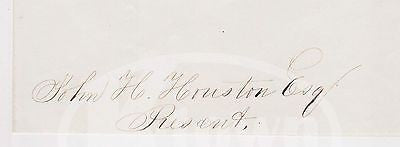 John H. Houston Esq
Present.